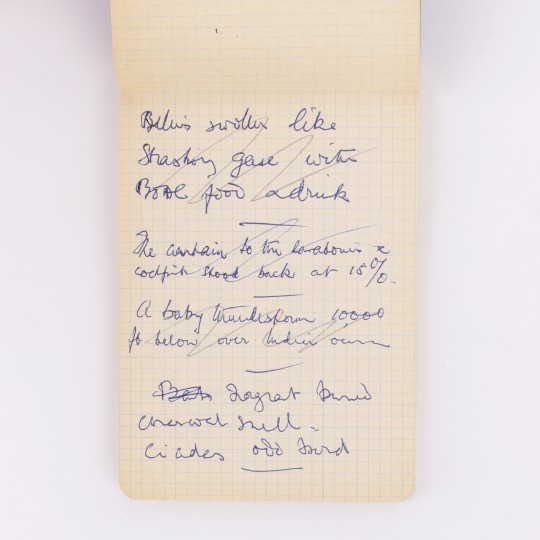 Bellies swollen like
Strasbourg geese with
BOAC food & drink
The curtain to the lavatories &
cockpit stood back at 15%.
A baby thunderstorm 10000
ft below over Indian ocean
fragrant burned
charcoal smell.
Cicadas odd bird